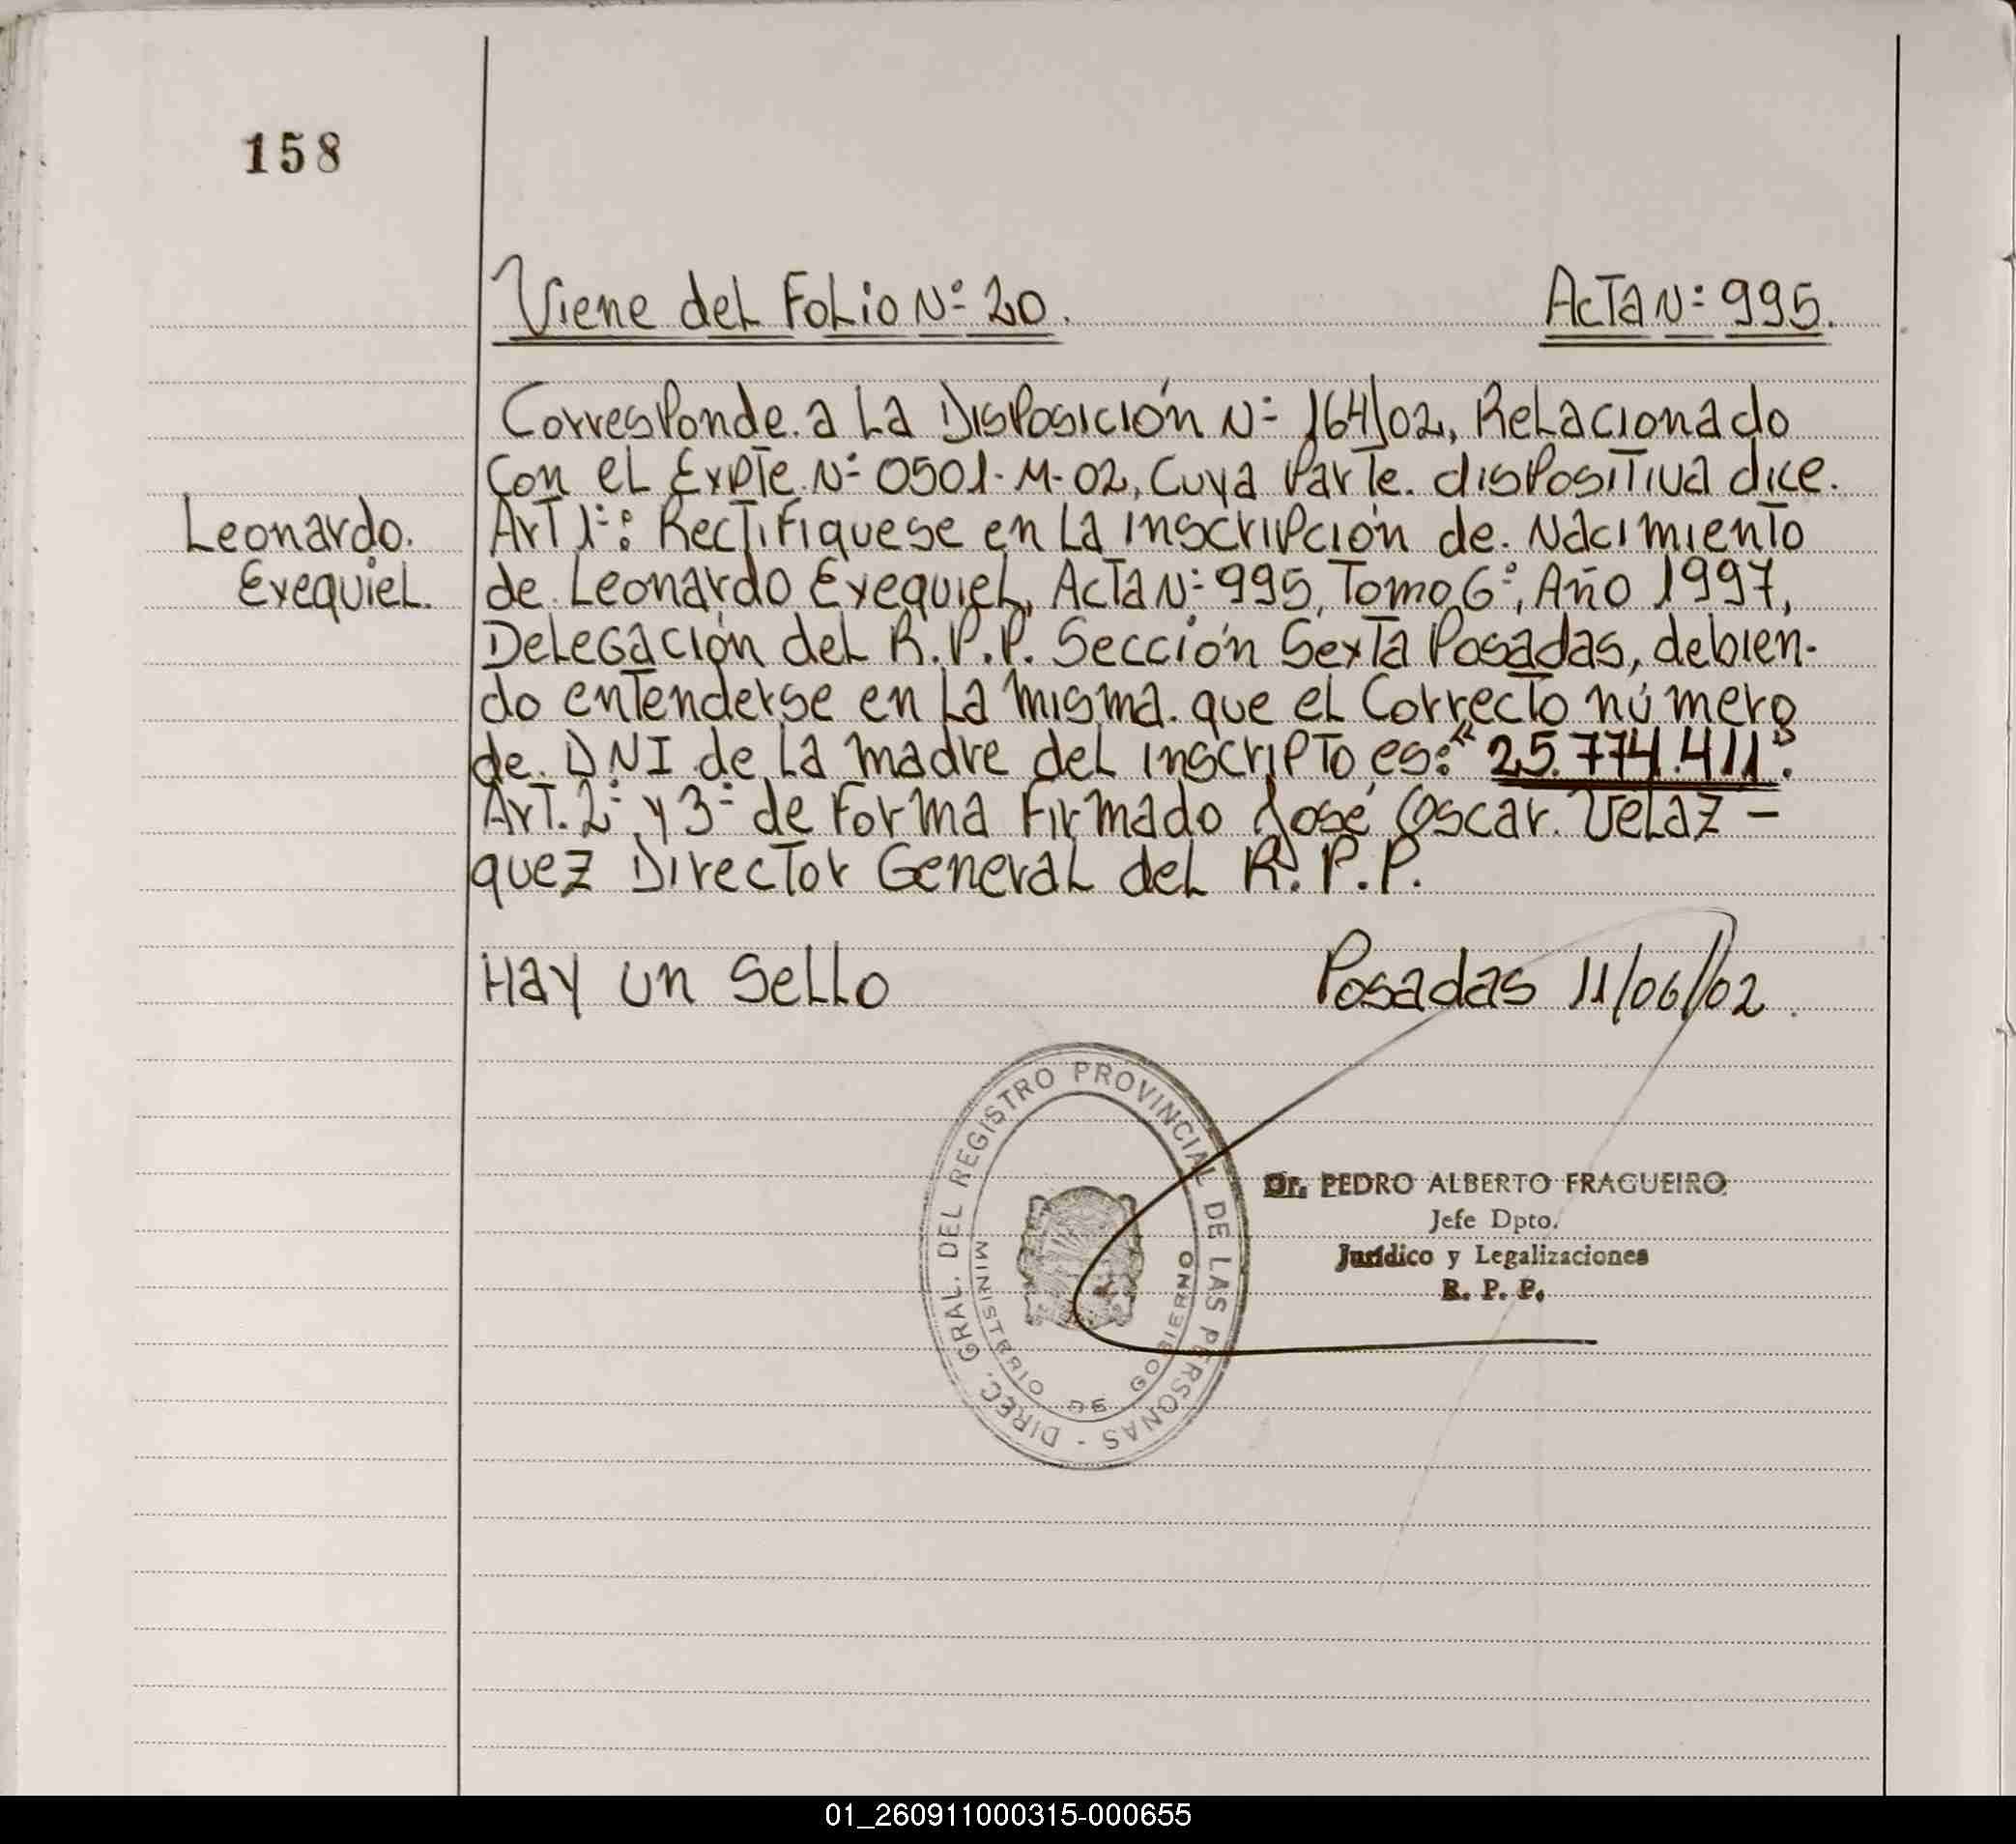 158
Viene del Folio Nº 20. Acta Nº 995.
Corresponde a La Disposición Nº 164/02, Relacionado
Con el Expte. Nº 0501-M-02, Cuya Parte dispositiva dice.
Leonardo. Art 1º: Rectifiquese en La inscripción de Nacimiento
Exequiel. de Leonardo Exequiel, Acta Nº 995, Tomo 6º, Año 1997,
Delegación del R.P.P. Sección Sexta Posadas, debien-
do entenderse en La misma que el Correcto número
de DNI de La madre del inscripto es: "25.774.411".
Art. 2º y 3º de Forma Firmado José Oscar Velaz-
quez Director General del R.P.P.
Hay un Sello Posadas 11/06/02.
DIREC. GRAL. DEL REGISTRO PROVINCIAL DE LAS PERSONAS -
MINISTERIO DE GOBIERNO
Dr. PEDRO ALBERTO FRAGUEIRO
Jefe Dpto.
Jurídico y Legalizaciones
R. P. P.
01_260911000315-000655